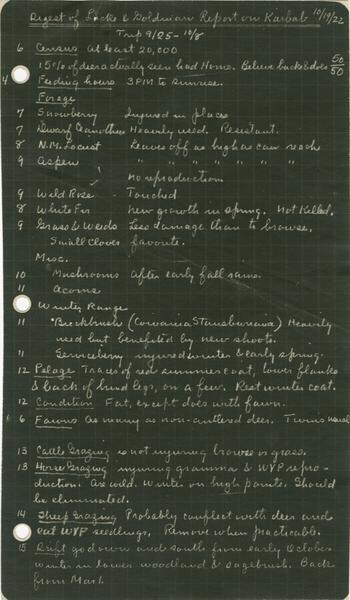 Digest of Locke & Goldman Report on Kaibab 10/19/22
Trip 9/25 - 10/8
6 Census At least 20,000
15% of deer actually seen had Horns. Believe bucks & does 50/50
4 Feeding hours 3PM to sunrise.
Forage
7 Snowberry Injured in places
7 Dwarf Ceanothus Heavily used. Resistant.
8 N.M. Locust Leaves off as high as can reach
9 Aspen " " " " " " "
No reproduction.
9 Wild Rose - Touched
8 White Fir New growth in spring. Not killed.
9 Grass & Weeds Less damage than to browse.
Small Clover favorite.
Misc.
10 Mushrooms After early fall rains.
11 Acorns
Winter Range
11 "Buckbrush (Cowania Stansburiana) Heavily
used but benefited by new shoots.
11 Serviceberry injured winter & early spring.
12 Pelage Traces of red summer coat, lower flanks
& back of hind legs, on a few. Rest winter coat.
12 Condition Fat, except does with fawn.
6 Fawns As many as non-antlered deer. Twins usual
13 Cattle Grazing is not injuring browse or grass.
13 Horse Grazing injuring gramma & WYP repro-
duction. Are wild. Winter on high points. Should
be eliminated.
14 Sheep Grazing Probably conflict with deer and
eat WYP seedlings. Remove when practicable.
15 Drift go down and south from early October
winter in lower woodland & sagebrush. Back
from Mar 1.